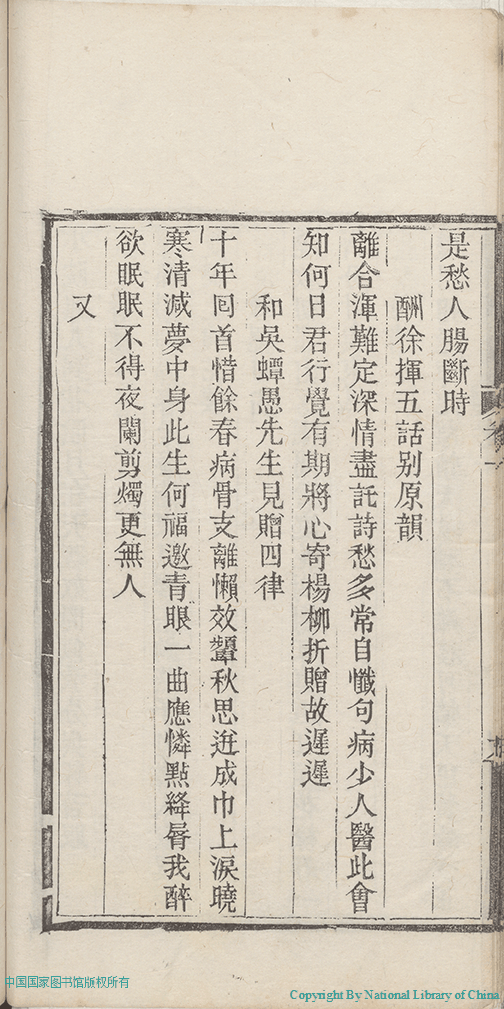 是愁人腸斷時
酬徐揮五話别原韻
離合渾難定深情盡託詩愁多常自懺句病少人醫此會
知何日君行覺有期將心寄楊柳折贈故遲遲
和吳蟫愚先生見贈四律
十年囘首惜餘春病骨支離懶效顰秋思迸成巾上淚曉
寒清減夢中身此生何福邀青眼一曲應憐點絳脣我醉
欲眠眠不得夜闌剪燭更無人
又
中国国家图书馆版权所有
Copyright By National Library of China